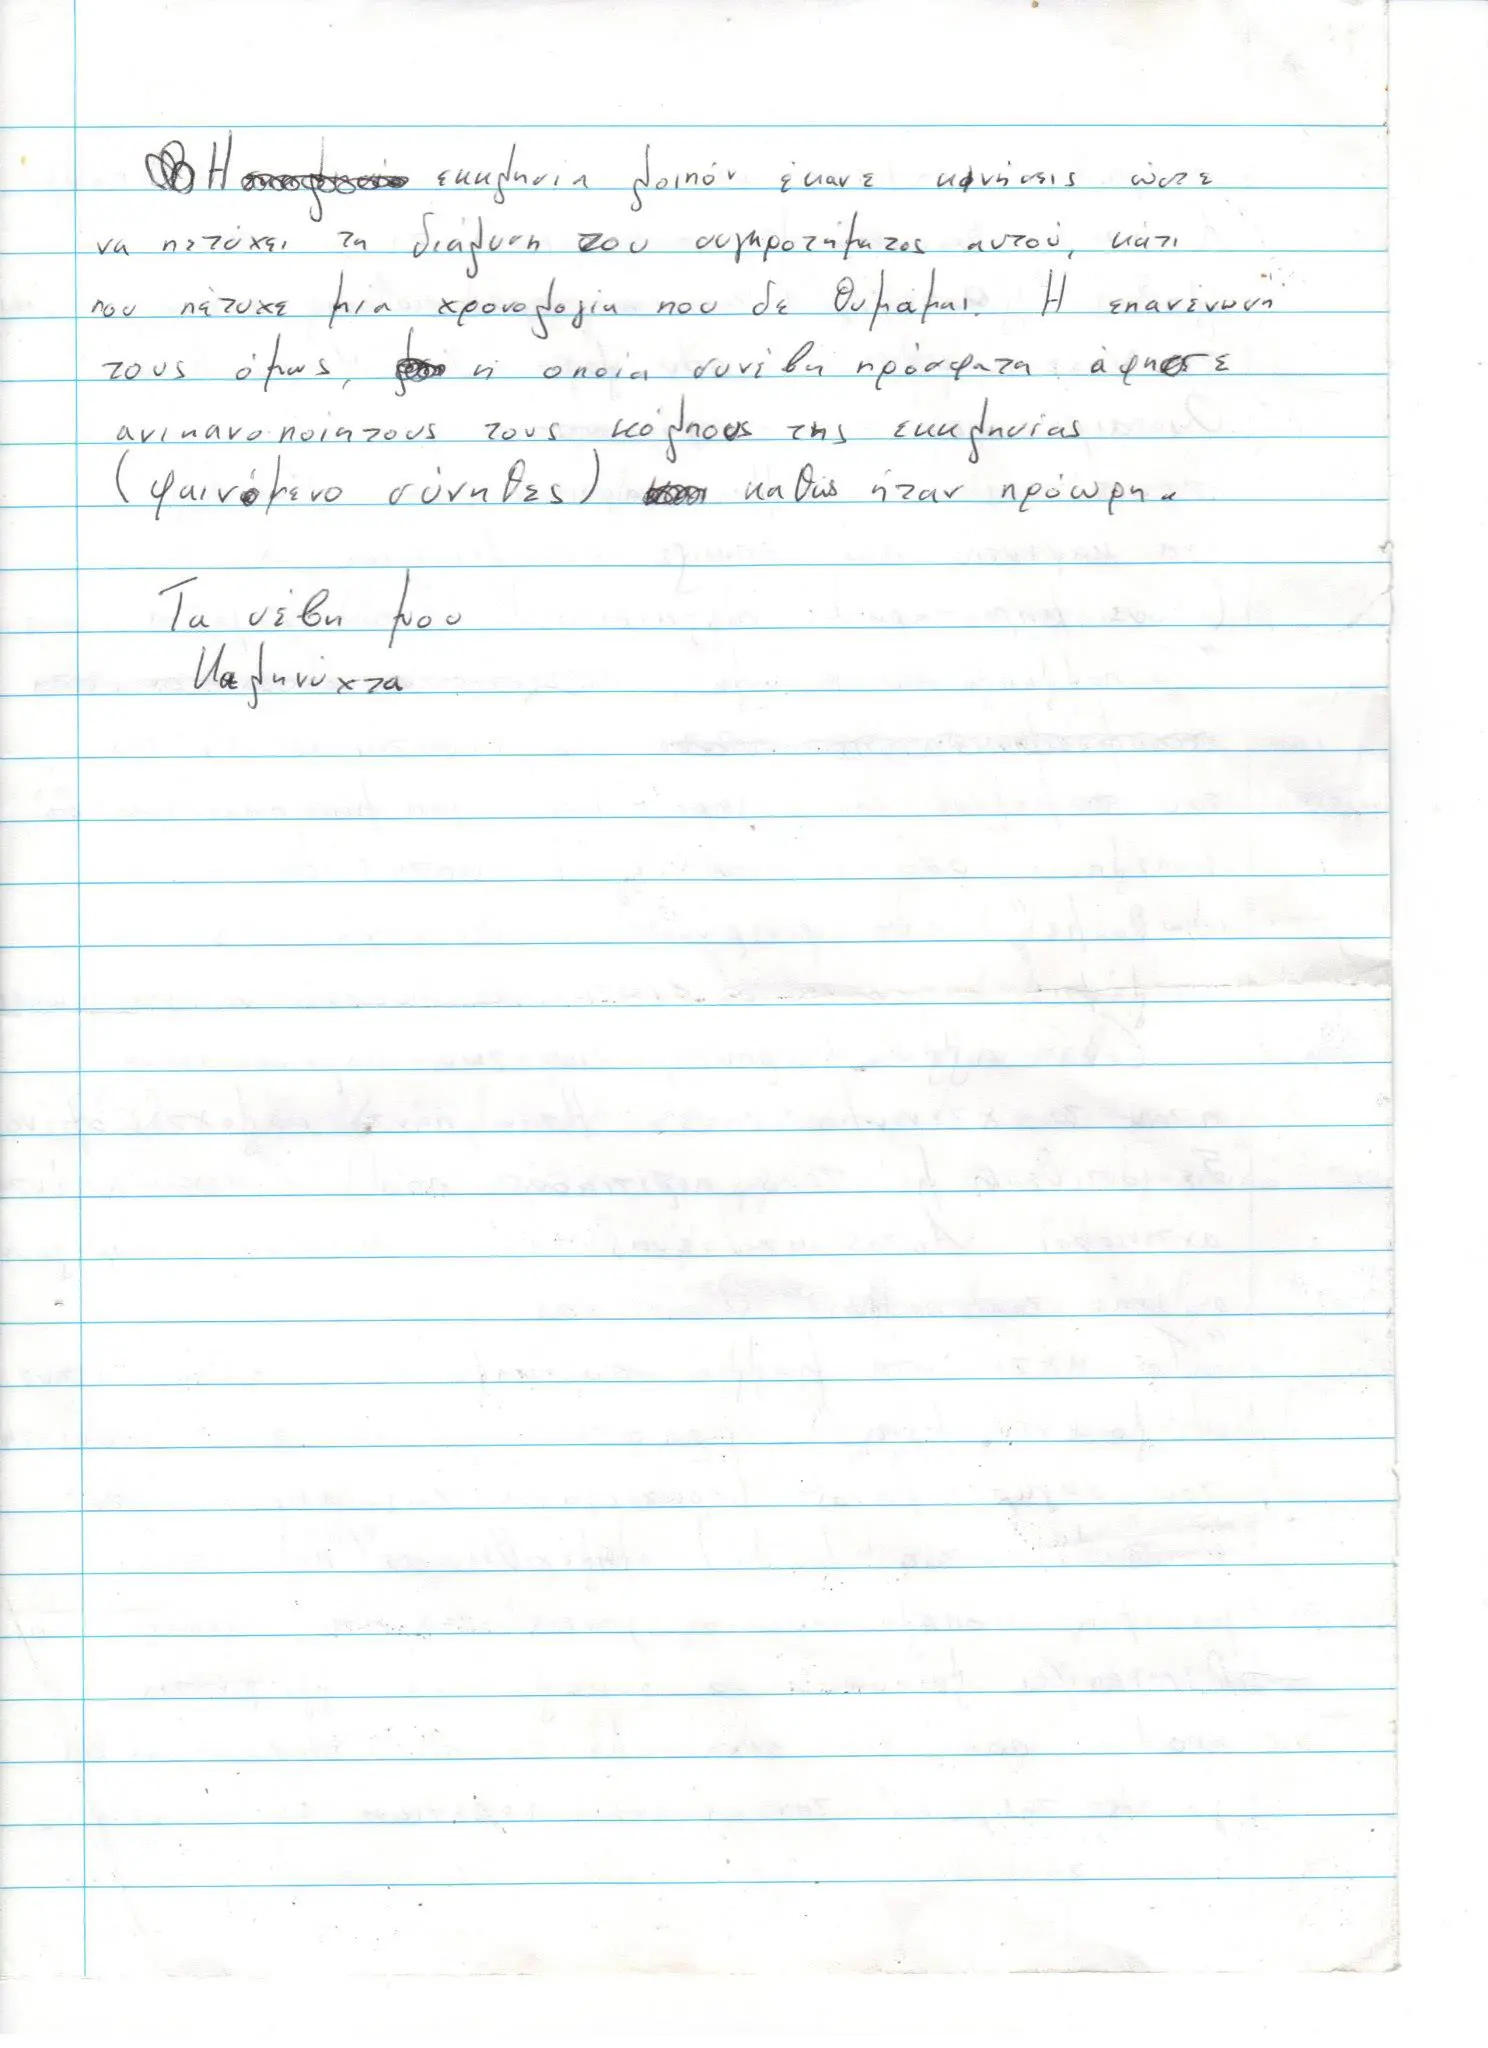 Η εκκλησία λοιπόν έκανε κινήσεις ώστε
να πετύχει τη διάλυση του συγκροτήματος αυτού, κάτι
που πέτυχε μια χρονολογία που δε θυμάμαι. Η επανένωση
τους όμως, η οποία συνέβη πρόσφατα άφησε
ανικανοποίητους τους κόλπους της εκκλησίας
(φαινόμενο σύνηθες) καθώς ήταν πρόωρη.
Τα σέβη μου
Καληνύχτα